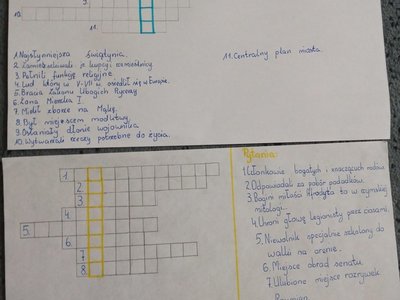 10.
11.
1. Najsłynniejsza świątynia.
2. Zamieszkiwali je kupcy, rzemieślnicy.
3. Pełnili funkcję religijne.
4. Lud który w V-VII w. osiedlił się w Europie.
5. Bracia Zakonu Ubogich Rycerzy
6. Żona Mieszka I.
7. Mielił zboże na Mąkę.
8. Był miejscem modlitwy.
9. Osłaniały dłonie wojownika.
10. Wytwarzali rzeczy potrzebne do życia.
11. Centralny plan miasta.
1.
2.
3.
4.
5.
6.
7.
8.
Pytania:
1. Członkowie bogatych i znaczących rodów.
2. Odpowiadali za pobór podatków.
3. Bogini miłości Afrodyta to w rzymskiej
mitologii
4. Chroni głowę legionisty przed ciosami.
5. Niewolnik specjalnie szkolony do
walki na arenie.
6. Miejsce obrad senatu.
7. Ulubione miejsce rozrywek
Rzymian